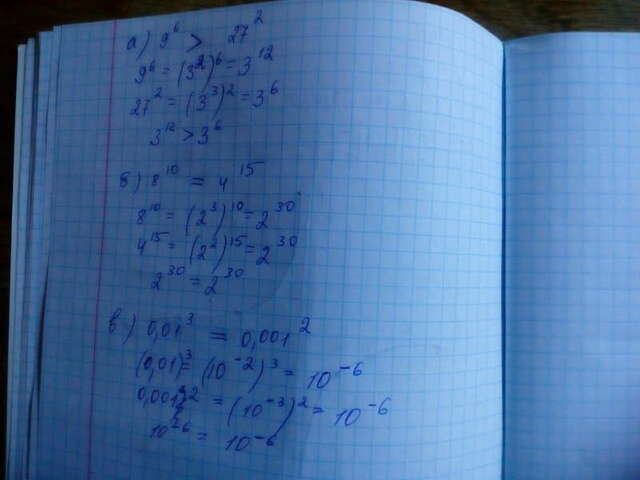 а) 9⁶ > 27²
9⁶ = (3²)⁶ = 3¹²
27² = (3³)² = 3⁶
3¹² > 3⁶
б) 8¹⁰ = 4¹⁵
8¹⁰ = (2³)¹⁰ = 2³⁰
4¹⁵ = (2²)¹⁵ = 2³⁰
2³⁰ = 2³⁰
в) 0,01³ = 0,001²
(0,01)³ = (10⁻²)³ = 10⁻⁶
0,001² = (10⁻³)² = 10⁻⁶
10⁻⁶ = 10⁻⁶